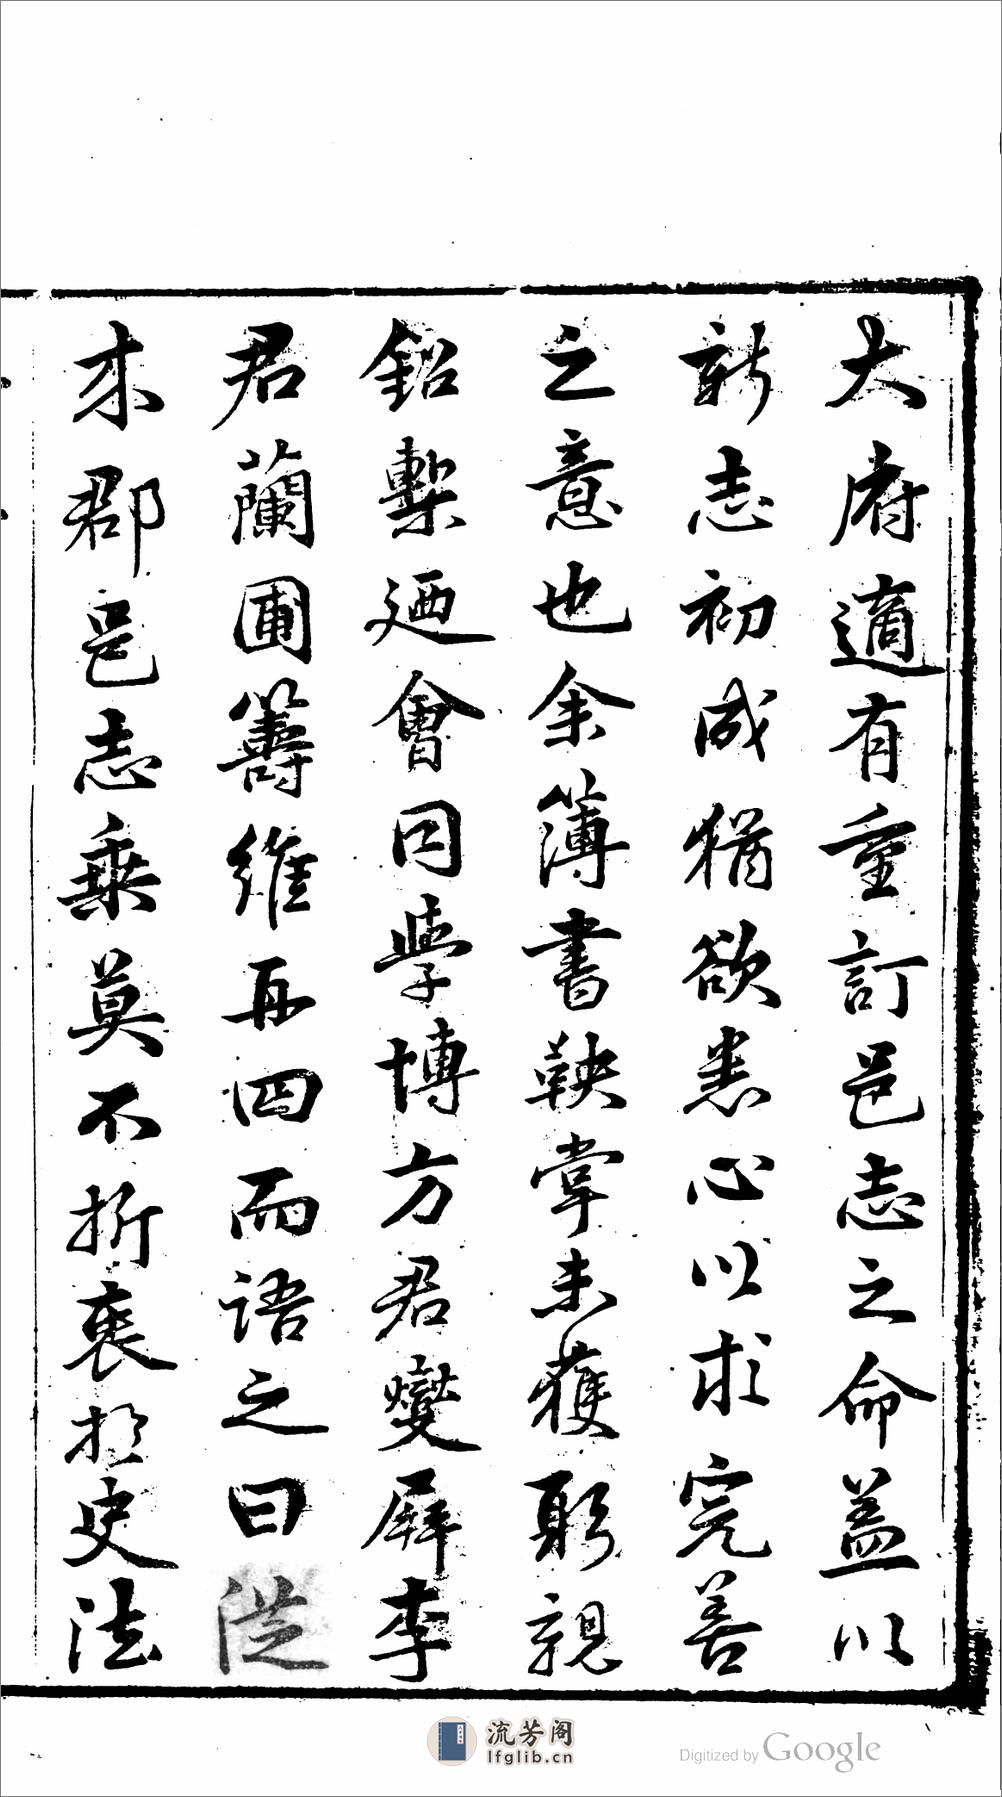 大府適有重訂邑志之命蓋以
新志初成猶欲悉心以求完善
之意也余簿書鞅掌未獲躬親
鉛槧廼會同學博方君燮屏李
君蘭圃籌維再四而語之曰從
来郡邑志乘莫不折衷於史法
流芳阁
lfglib.cn
Digitized by Google